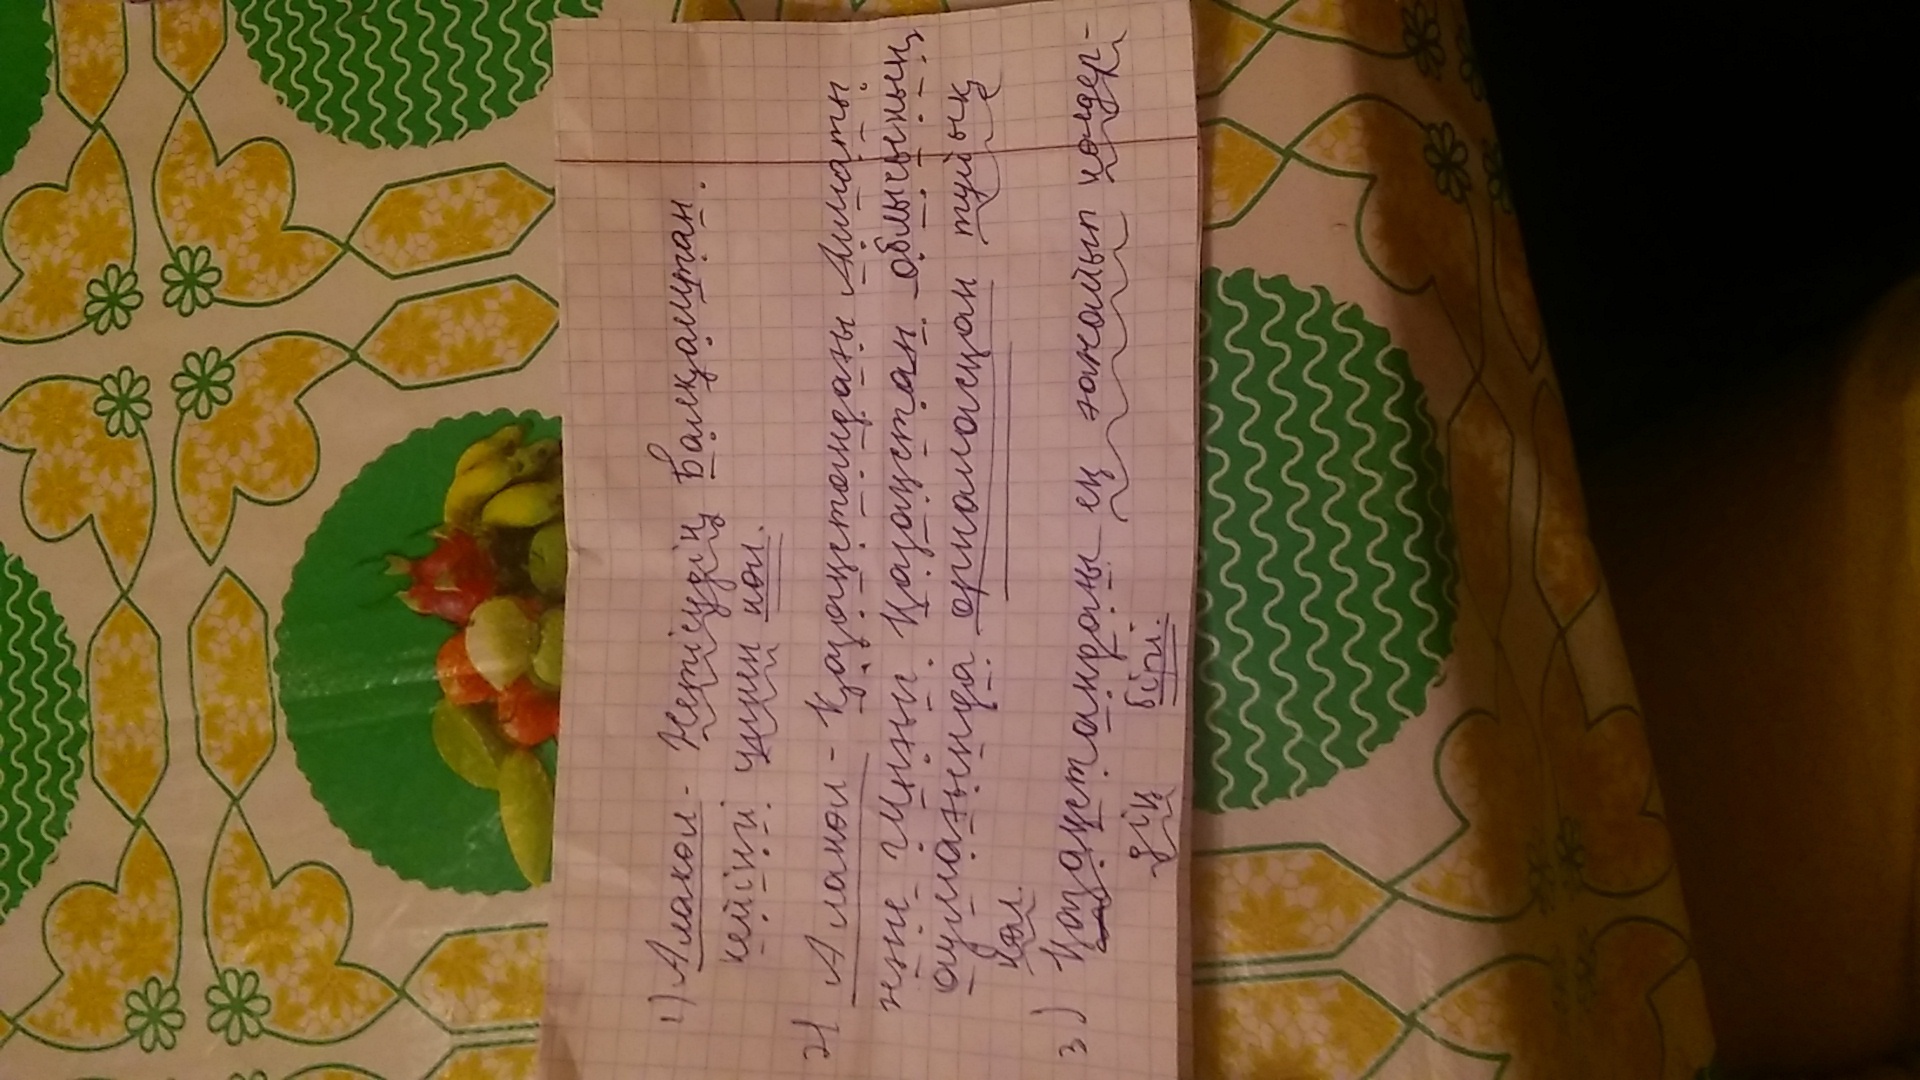 1) Алакөл - Жетісудің Балқаштан
кейінгі үлкен көл.
2) Алакөл - Қазақстандағы Алматы
және Шығыс Қазақстан облысының
аумағында орналасқан тұйық
көл.
3) Қазақстандағы ең ғажайып көлдер-
дің бірі.